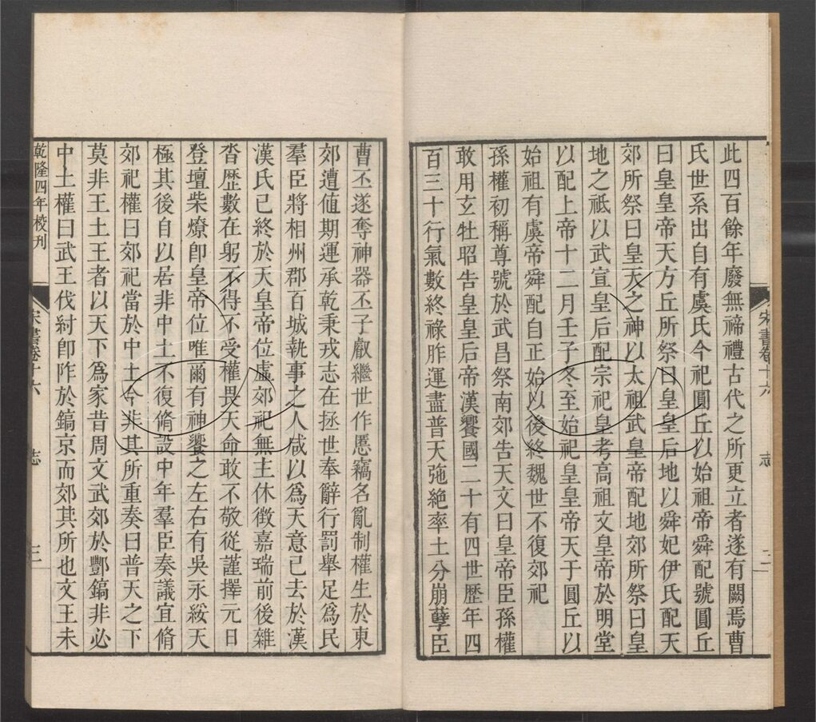 此四百餘年廢無禘禮古代之所更立者遂有闕焉曹
氏世系出自有虞氏今祀圜丘以始祖帝舜配號圜丘
曰皇皇帝天方丘所祭曰皇皇后地以舜妃伊氏配天
郊所祭曰皇天之神以太祖武皇帝配地郊所祭曰皇
地之祇以武宣皇后配宗祀皇考高祖文皇帝於明堂
以配上帝十二月壬子冬至始祀皇皇帝天于圜丘以
始祖有虞帝舜配自正始以後終魏世不復郊祀
孫權初稱尊號於武昌祭南郊告天文曰皇帝臣孫權
敢用玄牡昭告皇皇后帝漢饗國二十有四世歷年四
百三十行氣數終祿胙運盡普天弛絶率土分崩孽臣
宋書卷十六
志
二
曹丕遂奪神器丕子叡繼世作慝竊名亂制權生於東
郊遭値期運承乾秉戎志在拯世奉辭行罰舉足爲民
羣臣將相州郡百城執事之人咸以爲天意已去於漢
漢氏已終於天皇帝位虛郊祀無主休徵嘉瑞前後雜
沓歷數在躬不得不受權畏天命敢不敬從謹擇元日
登壇柴燎卽皇帝位唯爾有神饗之左右有吳永綏天
極其後自以居非中土不復脩設中年羣臣奏議宜脩
郊祀權曰郊祀當於中土今非其所重奏曰普天之下
莫非王土王者以天下爲家昔周文武郊於酆鎬非必
中土權曰武王伐紂卽阼於鎬京而郊其所也文王未
乾隆四年校刊
宋書卷十六
志
三